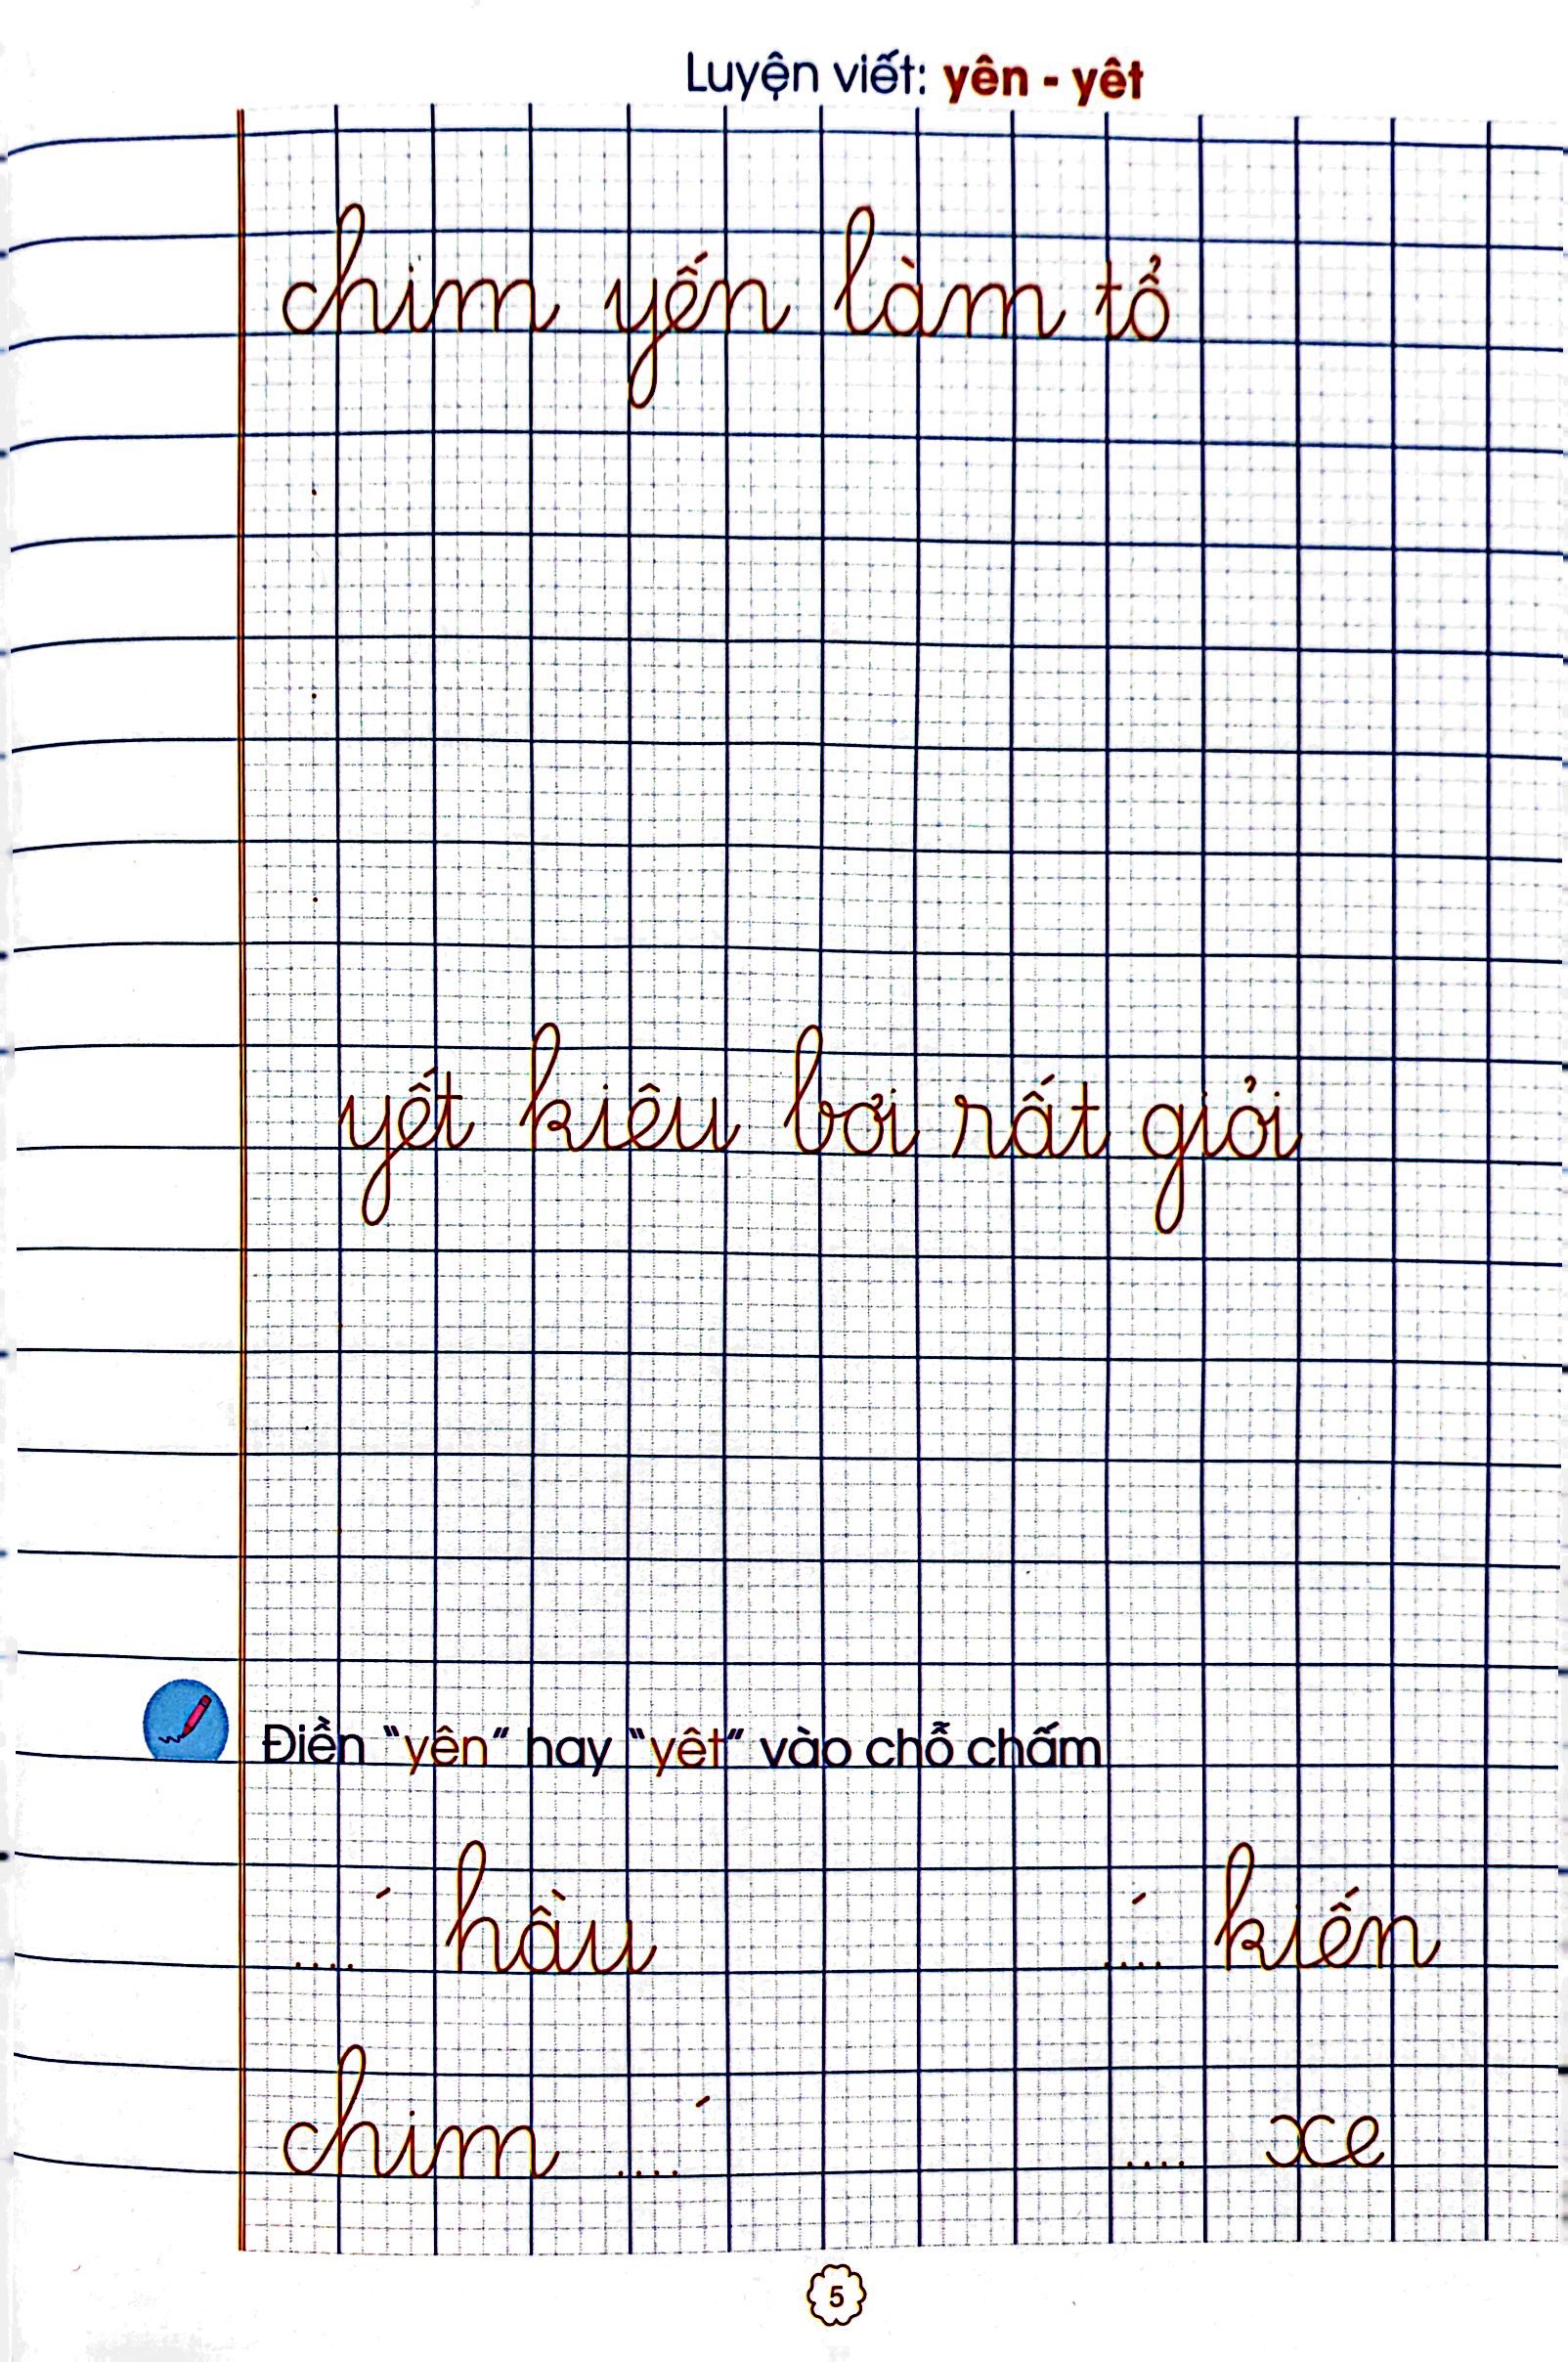 Luyện viết: yên - yêt
chim yến làm tổ
yết kiêu bơi rất giỏi
Điền "yên" hay "yêt" vào chỗ chấm
....´ hầu ....´ kiến
chim ....´ .... xe
5